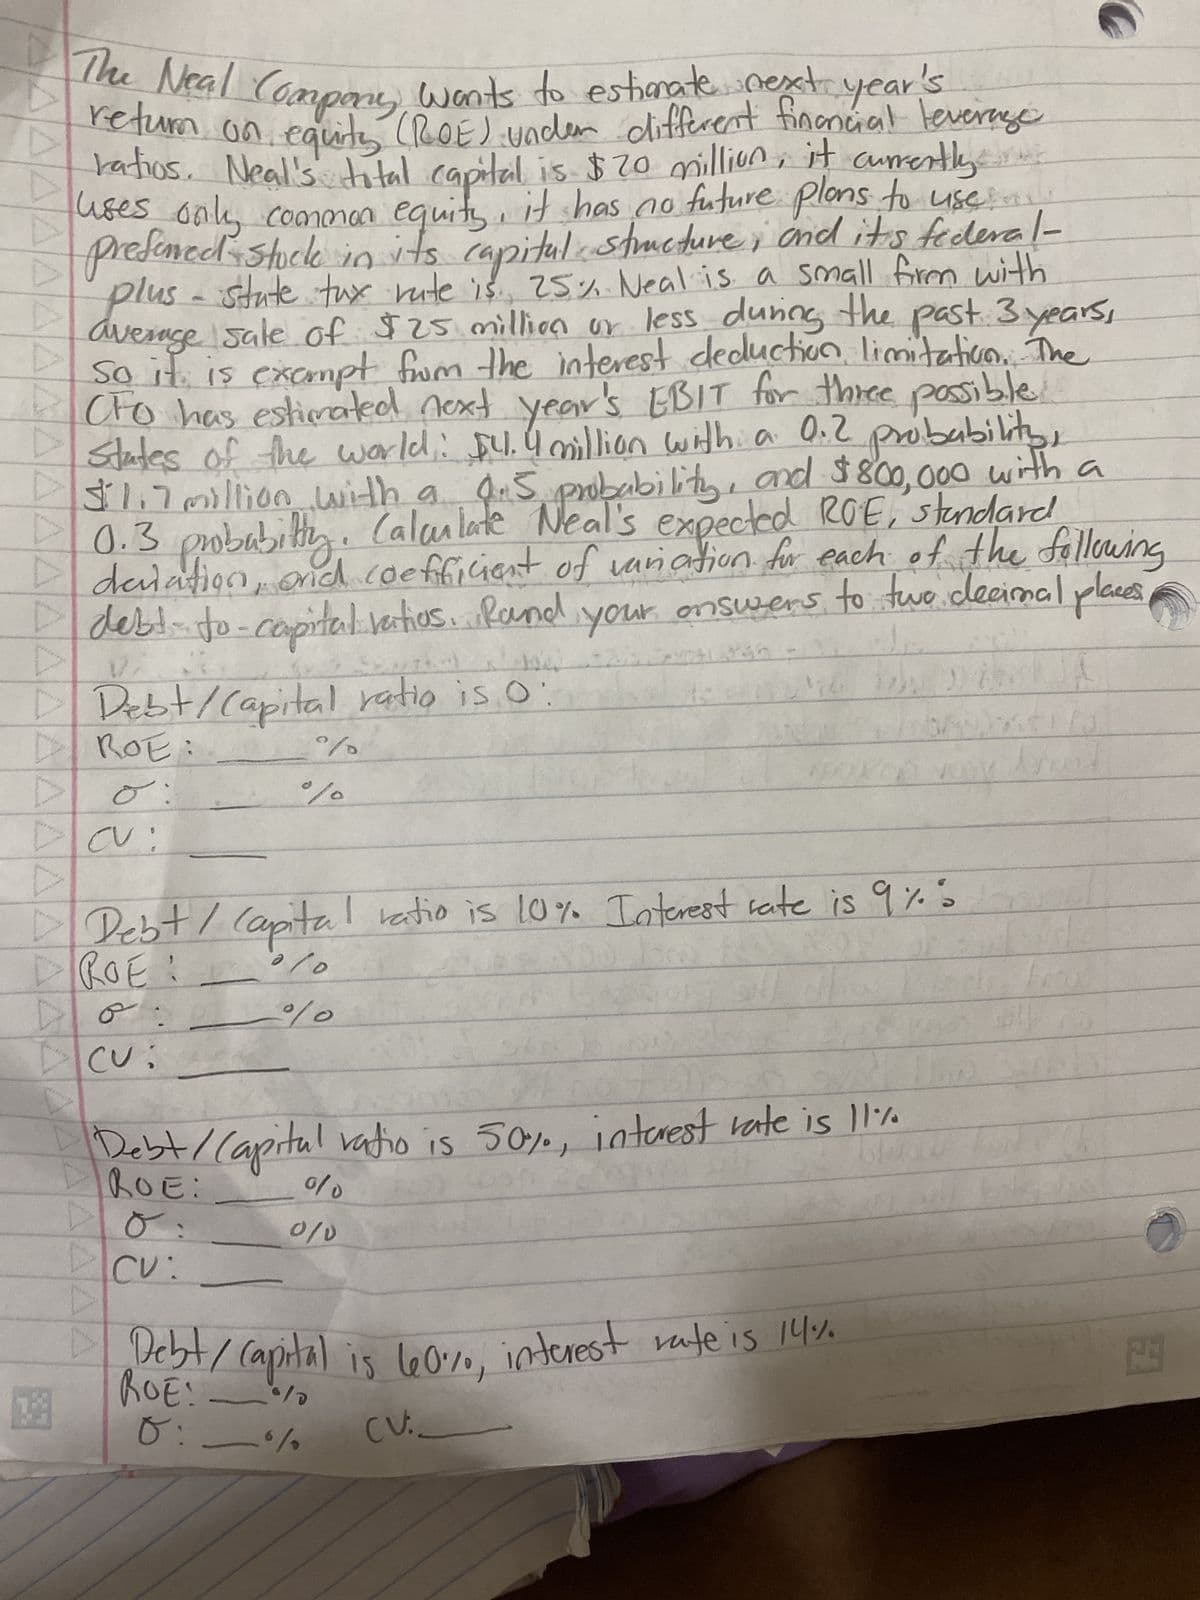 The Neal Company wants to estimate next year's
return on equity (ROE) under different financial leverage
ratios. Neal's total capital is $20 million, it currently
uses only common equity, it has no future plans to use
preferred stock in its capital structure, and its federal-
plus-state tax rate is 25% Neal is a small firm with
average sale of $25 million or less during the past 3 years,
so it is exempt from the interest deduction limitation. The
CFO has estimated next year's EBIT for three possible
states of the world: $4.4 million with a 0.2 probability,
$1.7 million with a 0.5 probability, and $800,000 with a
0.3 probability. Calculate Neal's expected ROE, standard
deviation, and coefficient of variation for each of the following
debt-to-capital ratios. Round your answers to two decimal places
Debt/Capital ratio is 0:
ROE: ___%
σ: __ %
CV: ___
Debt/Capital ratio is 10% Interest rate is 9%:
ROE: __%
σ: ___%
CV: ___
Debt/Capital ratio is 50%, interest rate is 11%
ROE: ___%
σ: ___%
CV: ___
Debt/Capital is 60%, interest rate is 14%
ROE: __%
σ: __% CV: ___